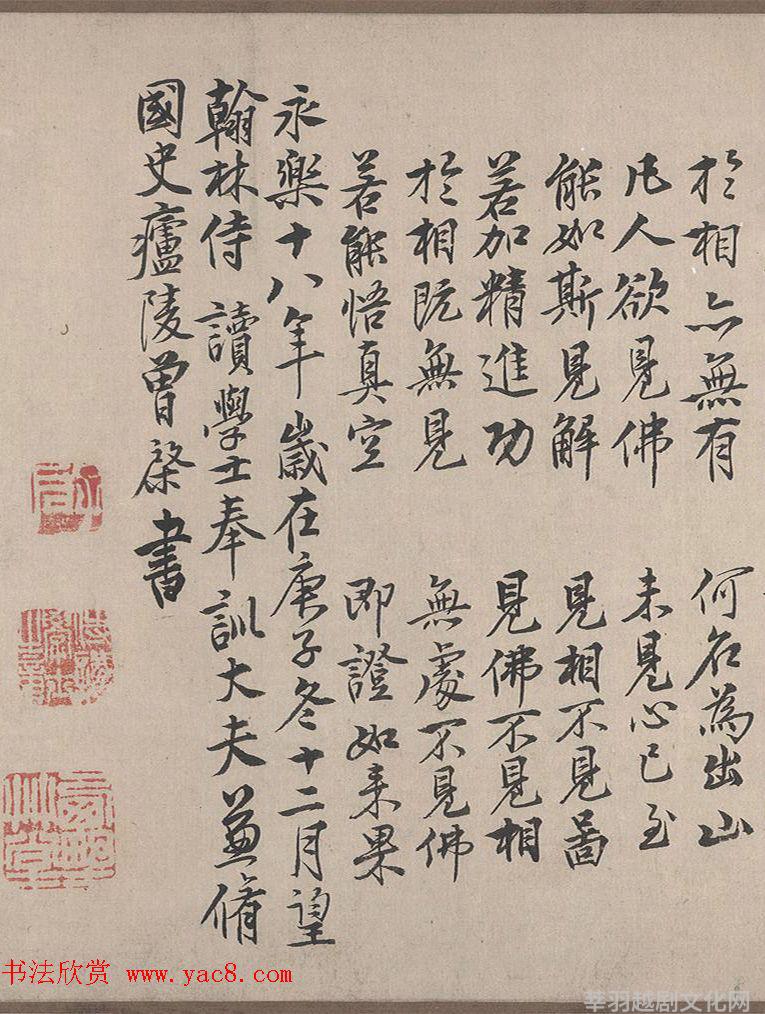 於相亦無有 何名為出山
凡人欲見佛 未見心已至
能如斯見解 見相不見啚
若加精進功 見佛不見相
於相既無見 無處不見佛
若能悟真空 即證如来果
永樂十八年歲在庚子冬十二月望
翰林侍讀學士奉訓大夫兼脩
國史廬陵曾棨書
书法欣赏 www.yac8.com
莘羽越剧文化网